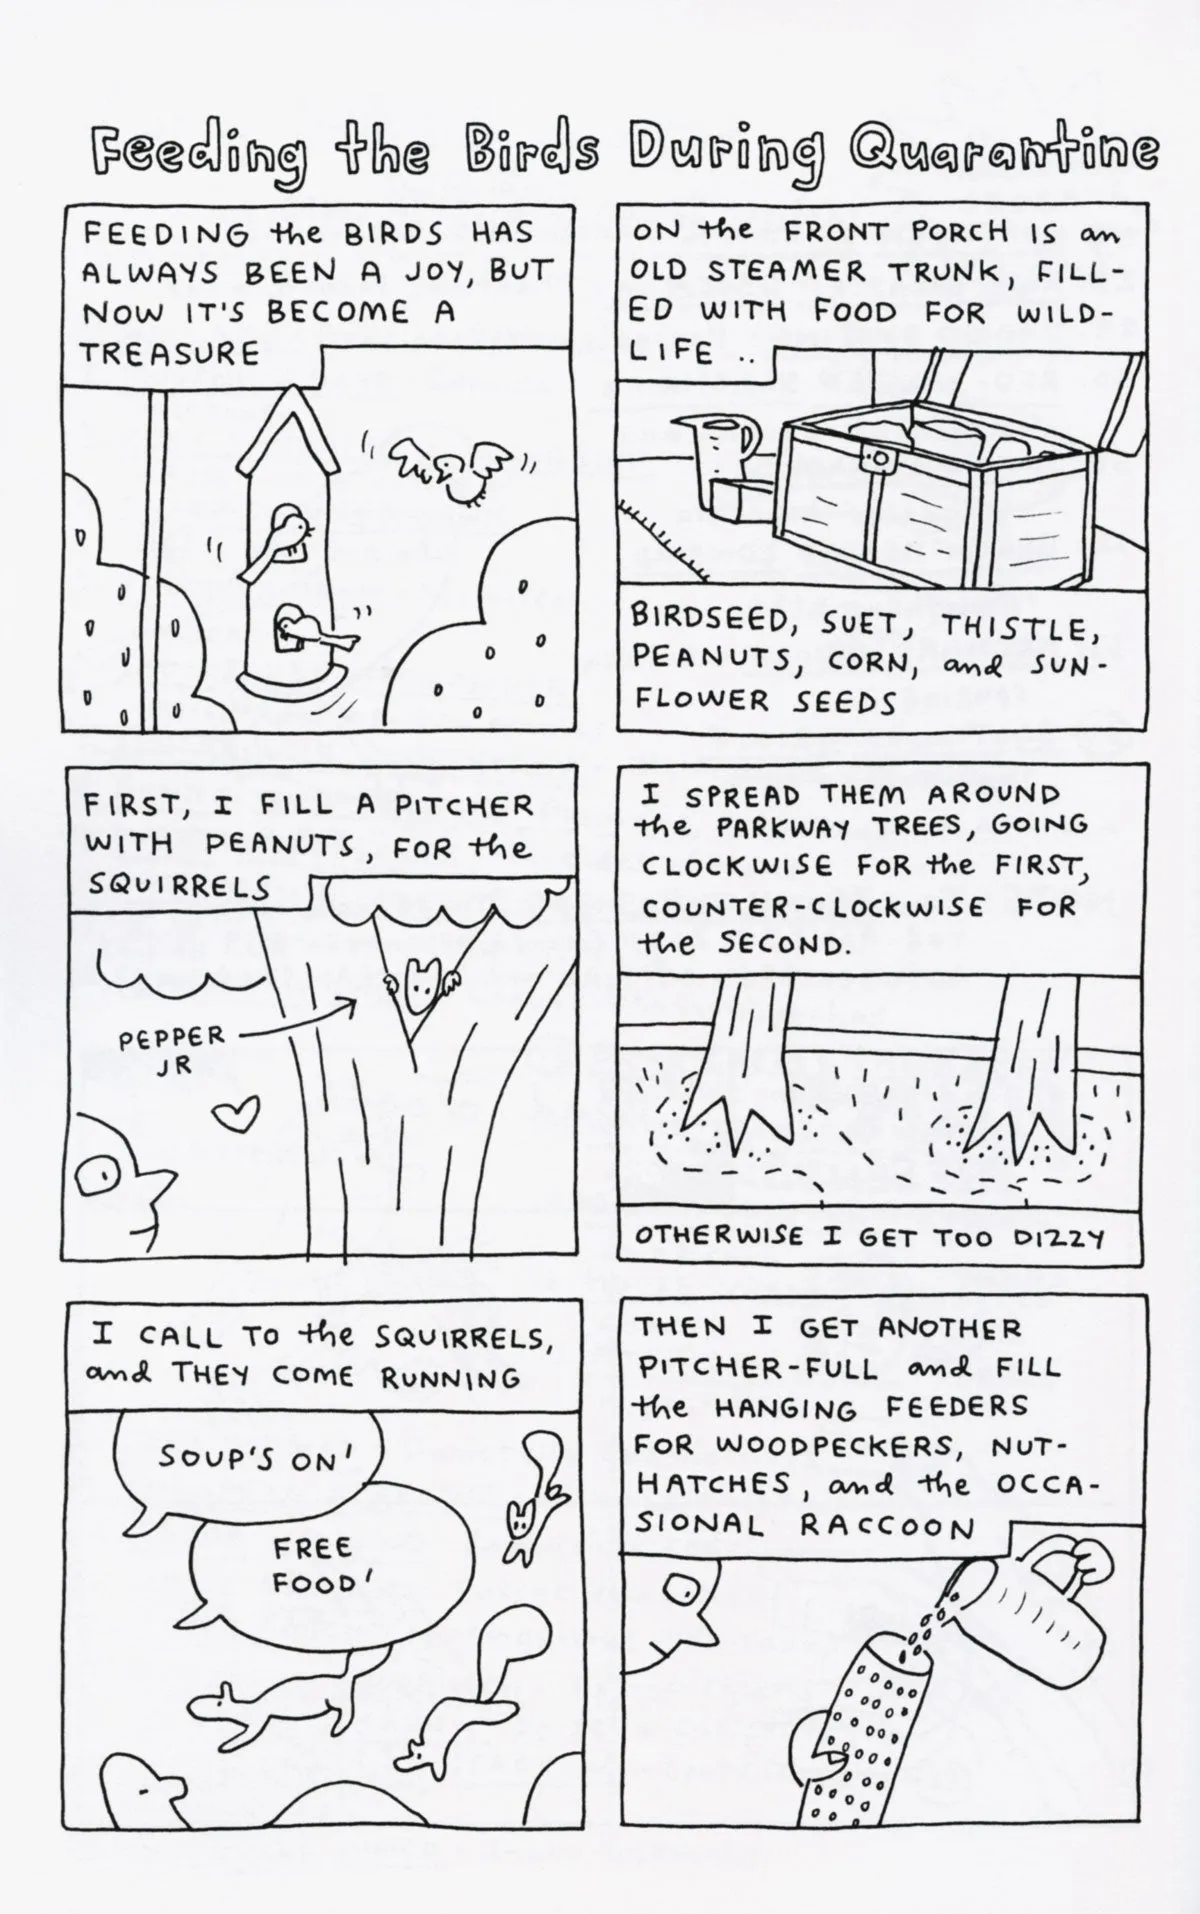 Feeding the Birds During Quarantine
FEEDING the BIRDS HAS
ALWAYS BEEN A JOY, BUT
NOW IT'S BECOME A
TREASURE
ON the FRONT PORCH IS an
OLD STEAMER TRUNK, FILL-
ED WITH FOOD FOR WILD-
LIFE ..
BIRDSEED, SUET, THISTLE,
PEANUTS, CORN, and SUN-
FLOWER SEEDS
FIRST, I FILL A PITCHER
WITH PEANUTS, FOR the
SQUIRRELS
PEPPER
JR
I SPREAD THEM AROUND
the PARKWAY TREES, GOING
CLOCKWISE FOR the FIRST,
COUNTER-CLOCKWISE FOR
the SECOND.
OTHERWISE I GET TOO DIZZY
I CALL TO the SQUIRRELS,
and THEY COME RUNNING
SOUP'S ON'
FREE
FOOD'
THEN I GET ANOTHER
PITCHER-FULL and FILL
the HANGING FEEDERS
FOR WOODPECKERS, NUT-
HATCHES, and the OCCA-
SIONAL RACCOON